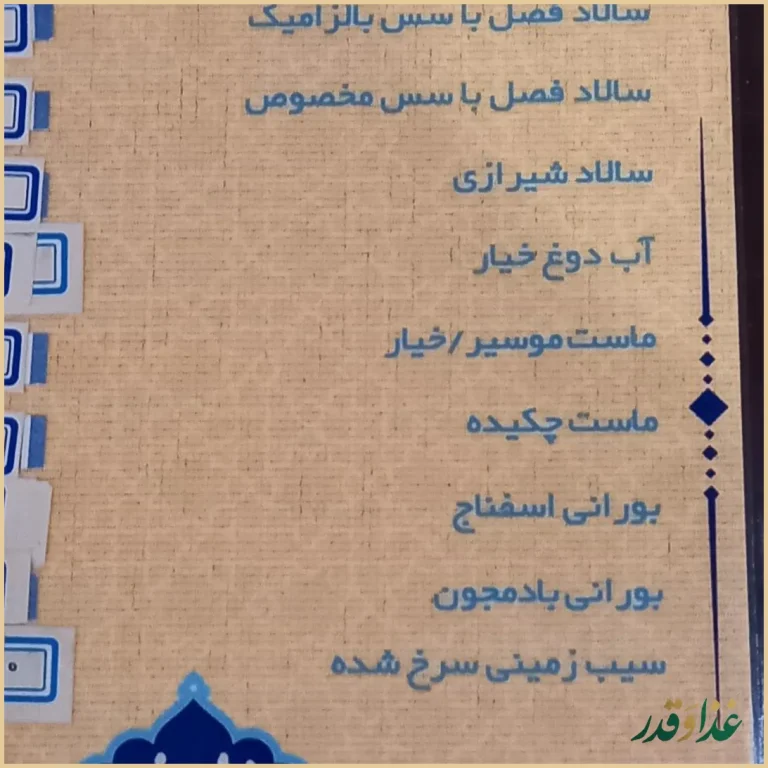 سالاد فصل با سس بالزامیک
سالاد فصل با سس مخصوص
سالاد شیرازی
آب دوغ خیار
ماست موسیر /خیار
ماست چکیده
بورانی اسفناج
بورانی بادمجون
سیب زمینی سرخ شده
غذا و قدر